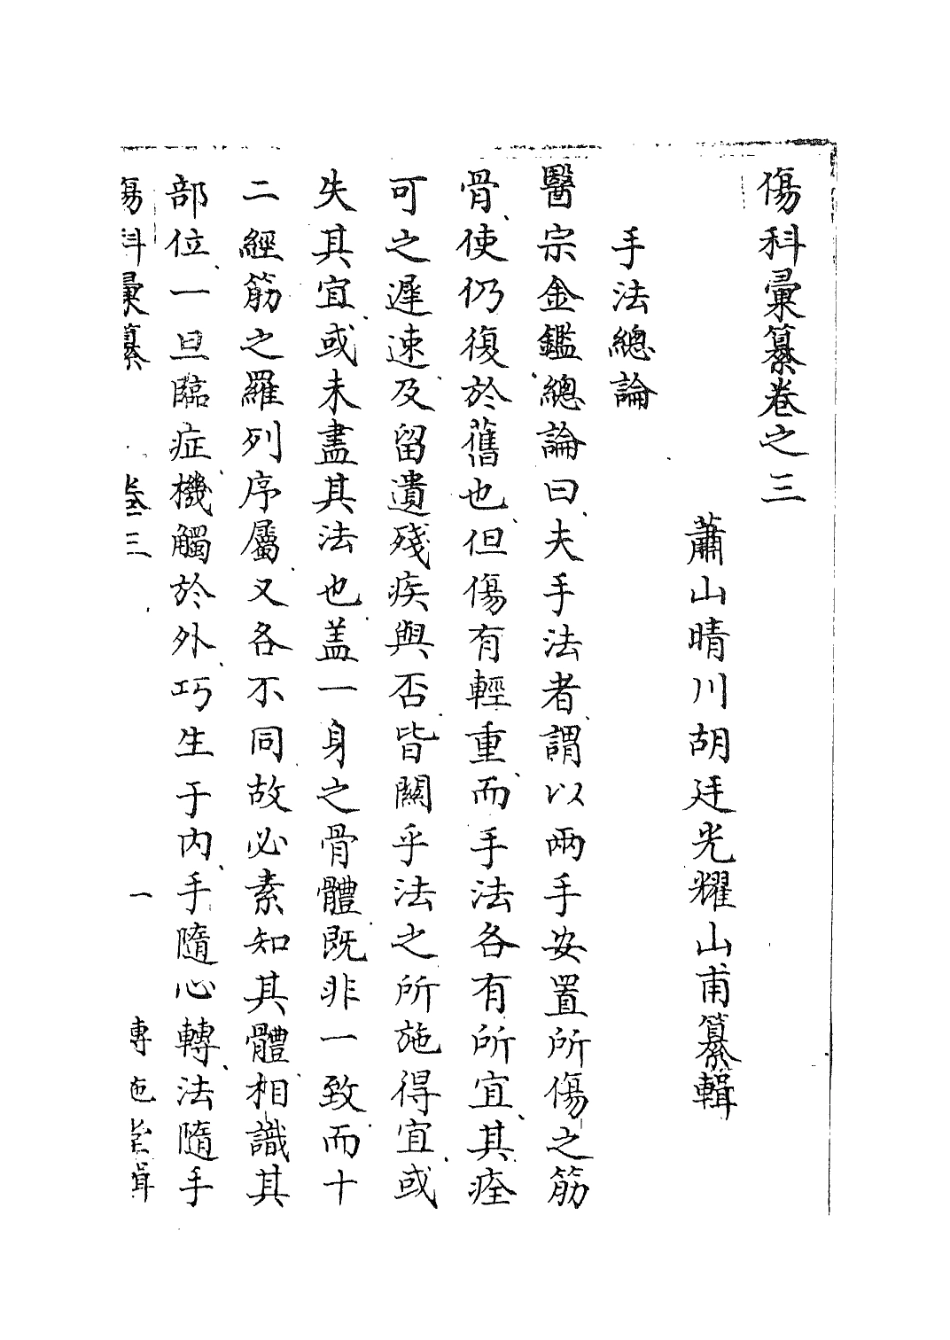 傷科彙纂卷之三
蕭山晴川胡廷光耀山甫纂輯
手法總論
醫宗金鑑總論曰夫手法者謂以兩手安置所傷之筋
骨使仍復於舊也但傷有輕重而手法各有所宜其痊
可之遲速及留遺殘疾與否皆關乎法之所施得宜或
失其宜或未盡其法也盖一身之骨體既非一致而十
二經筋之羅列序屬又各不同故必素知其體相識其
部位一旦臨症機觸於外巧生于内手隨心轉法隨手
傷科彙纂 卷三 一